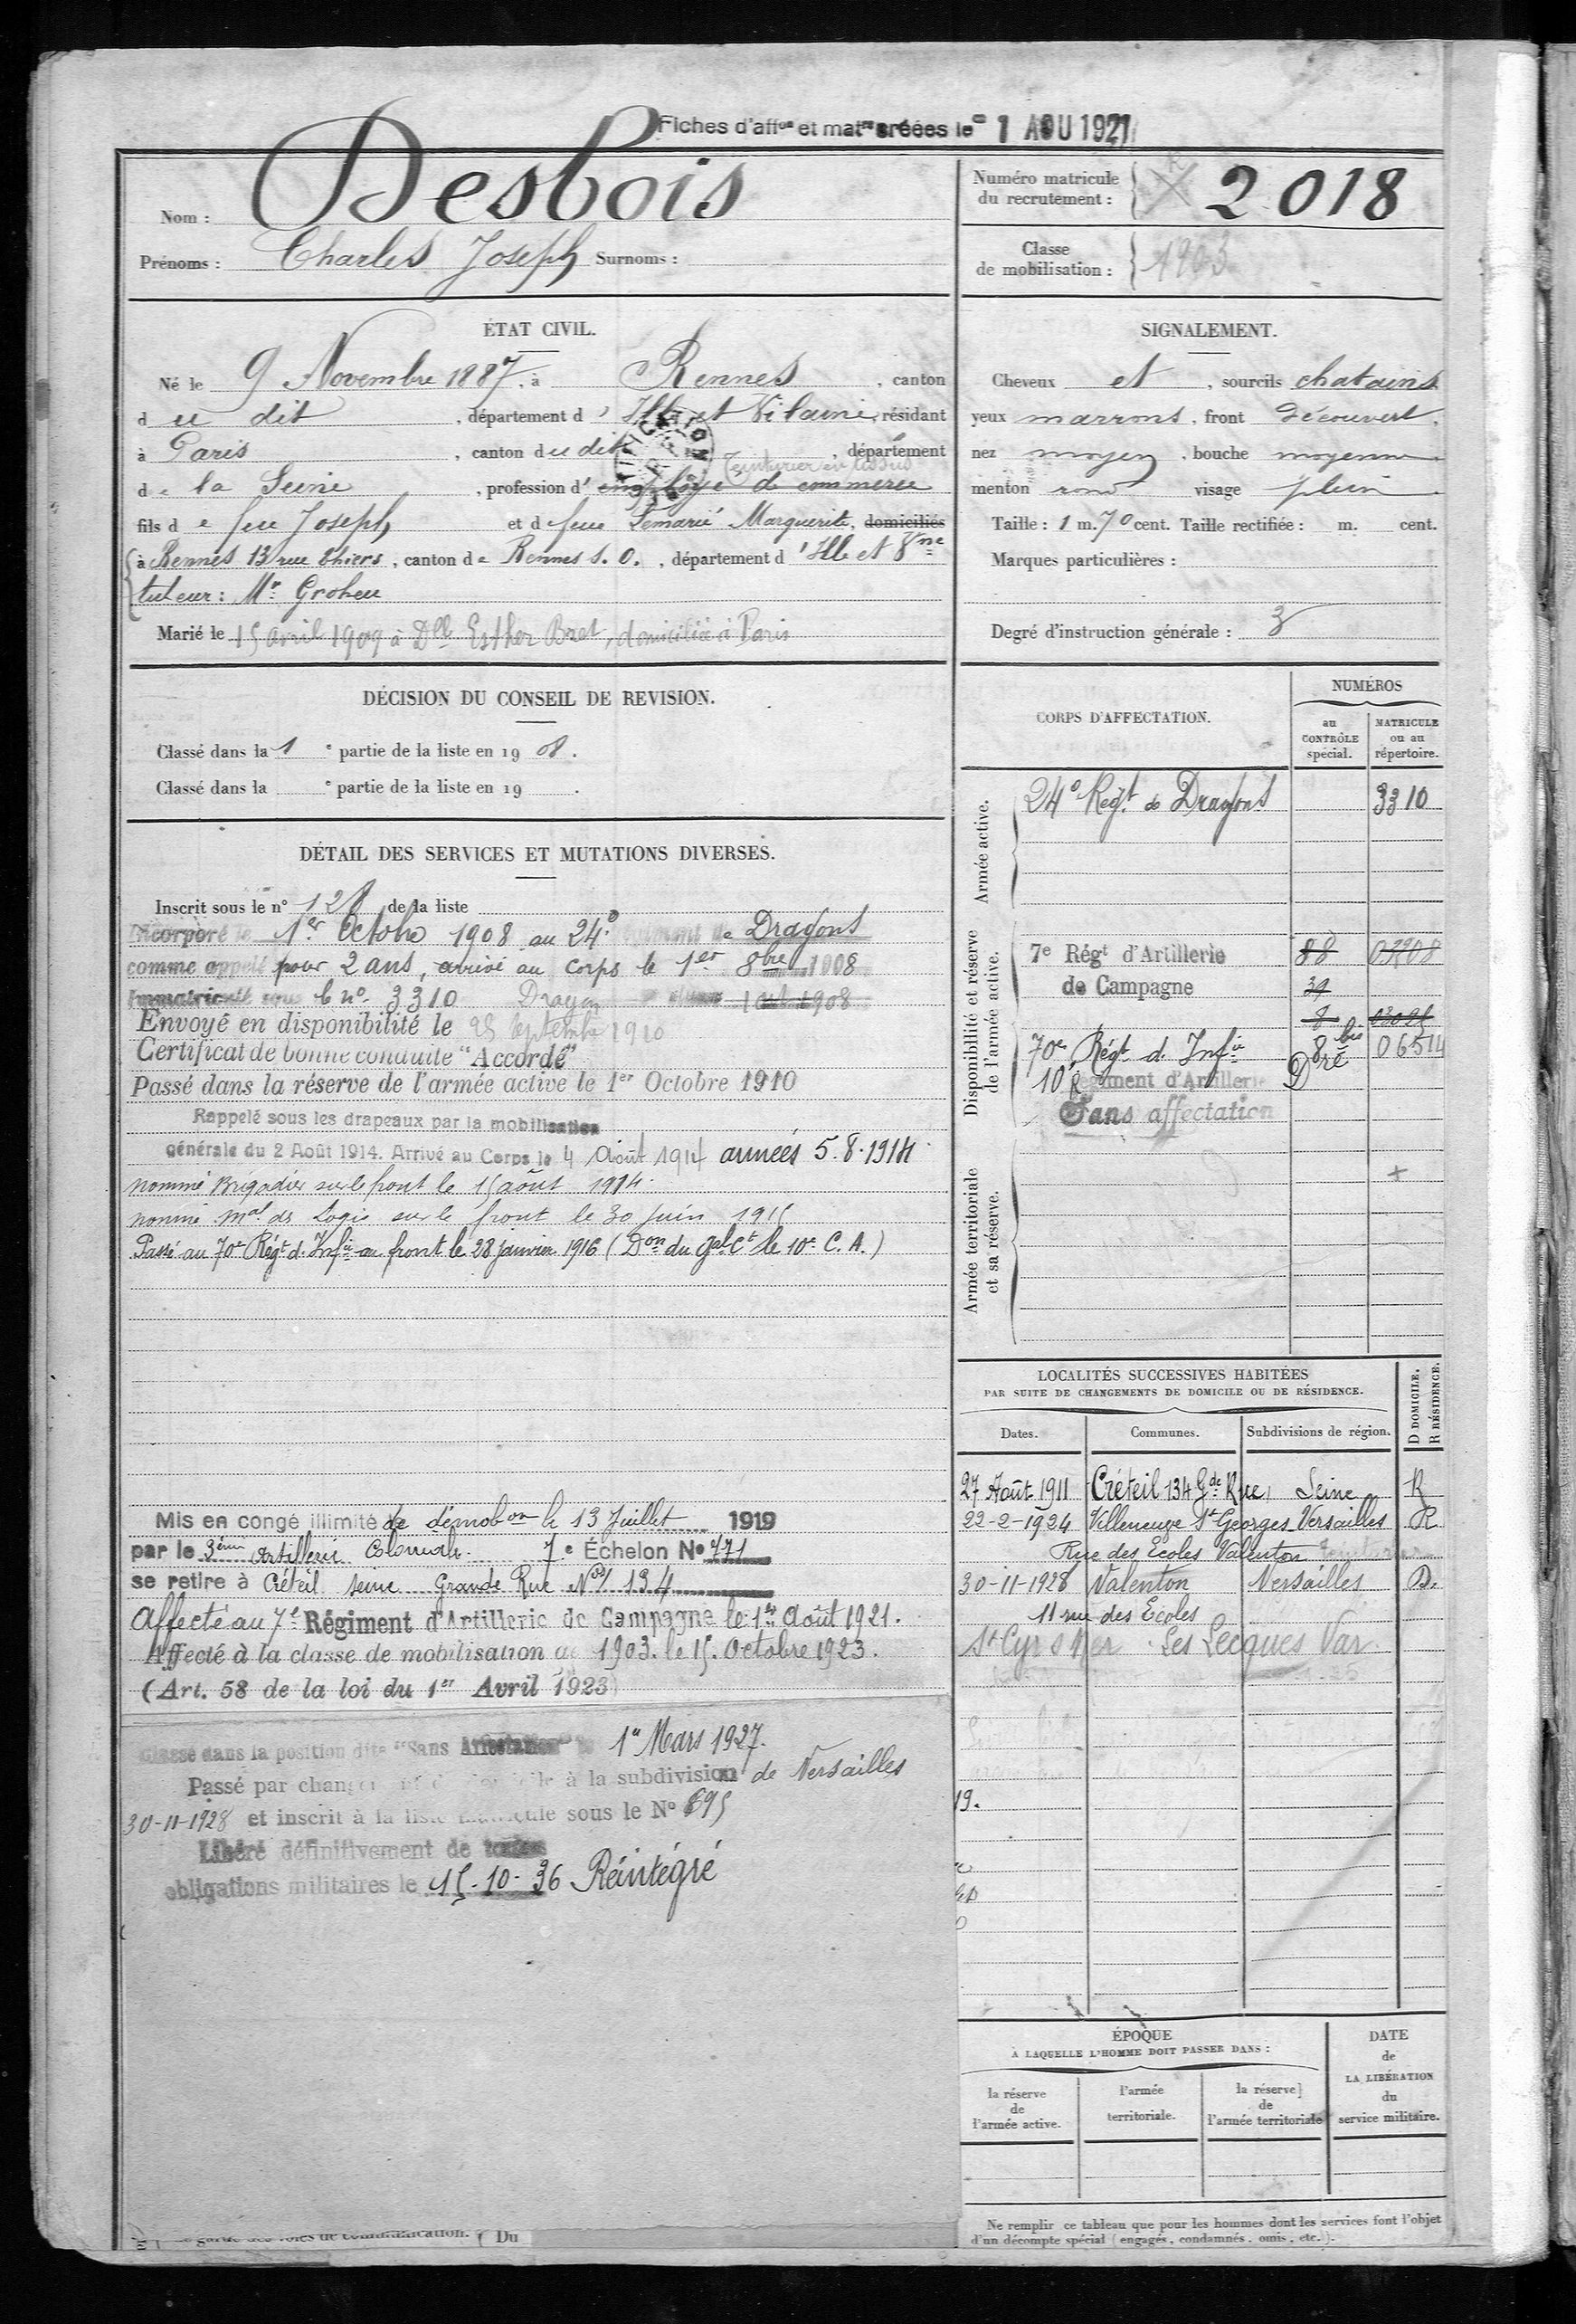 Fiches d'affon et matre créées le 1 AOU 1921
Nom : Desbois
Prénoms : Charles Joseph Surnoms :
Numéro matricule
du recrutement : 2018
Classe
de mobilisation : 1903
ÉTAT CIVIL.
Né le 9 Novembre 1887, à Rennes, canton
du dit, département d'Ille et Vilaine, résidant
à Paris, canton du dit, département
Teinturier en tissus
de la Seine, profession d'employé de commerce
fils de feu Joseph et de feue Lemarié Marguerite, domiciliés
à Rennes 13 rue Thiers, canton de Rennes S. O., département d'Ille et Vne
tuteur : Mr Groheu
Marié le 15 avril 1909 à Dlle Esther Bret, domiciliée à Paris
SIGNALEMENT.
Cheveux et, sourcils chatains
yeux marrons, front découvert.
nez moyen, bouche moyenne
menton rond visage plein.
Taille : 1 m. 70 cent. Taille rectifiée : m. cent.
Marques particulières :
Degré d'instruction générale : 3
DÉCISION DU CONSEIL DE REVISION.
Classé dans la 1e partie de la liste en 1908.
Classé dans la e partie de la liste en 19 .
DÉTAIL DES SERVICES ET MUTATIONS DIVERSES.
Inscrit sous le n° 128 de la liste
Incorporé le 1er Octobre 1908 au 24e régiment de Dragons
comme appelé pour 2 ans, arrivé au corps le 1er 8bre 1908
Immatriculé sous le no 3310 Dragon 1 oct 1908
Envoyé en disponibilité le 25 Septembre 1910
Certificat de bonne conduite "Accordé"
Passé dans la réserve de l'armée active le 1er Octobre 1910
Rappelé sous les drapeaux par la mobilisation
générale du 2 Août 1914. Arrivé au Corps le 4 Août 1914 armées 5.8.1914
nommé Brigadier sur le front le 15 août 1914.
nommé mal des Logis sur le front le 30 juin 1915
Passé au 70e Régt d'Infie au front le 28 janvier 1916 (Don du Gal Ct le 10e C. A.)
Mis en congé illimité de démobon le 13 Juillet 1919
par le 3ème Artillerie Coloniale. 7e Échelon No 771
se retire à Créteil Seine Grande Rue No 134
Affecté au 7e Régiment d'Artillerie de Campagne le 1er Août 1921.
Affecté à la classe de mobilisation de 1903. le 15. Octobre 1923.
(Art. 58 de la loi du 1er Avril 1923)
Classé dans la position dite "Sans Affectation" le 1er Mars 1927.
Passé par changement de domicile à la subdivision de Versailles
30-11-1928 et inscrit à la liste matricule sous le No 695
Libéré définitivement de toutes
obligations militaires le 15-10-36 Réintégré
CORPS D'AFFECTATION.
NUMÉROS
au
CONTRÔLE
spécial.
MATRICULE
ou au
répertoire.
Armée active.
24e Régt de Dragons 3310
Disponibilité et réserve
de l'armée active.
7e Régt d'Artillerie 88 03208
de Campagne 39
8
70e Régt d'Infie 8 bis 06514
10e Régiment d'Artillerie Dre
Sans affectation
Armée territoriale
et sa réserve.
+
LOCALITÉS SUCCESSIVES HABITÉES
PAR SUITE DE CHANGEMENTS DE DOMICILE OU DE RÉSIDENCE.
Dates. Communes. Subdivisions de région.
D DOMICILE.
R RÉSIDENCE.
27 Août 1911 Créteil 134 Gde Rue, Seine R
22-2-1924 Villeneuve St Georges Versailles R
Rue des Ecoles Valenton
30-11-1928 Valenton Versailles D.
11 rue des Ecoles
St Cyr s Mer. Les Lecques Var.
19.
ÉPOQUE
À LAQUELLE L'HOMME DOIT PASSER DANS :
la réserve
de
l'armée active.
l'armée
territoriale.
la réserve
de
l'armée territoriale
DATE
de
LA LIBÉRATION
du
service militaire.
Ne remplir ce tableau que pour les hommes dont les services font l'objet
d'un décompte spécial (engagés, condamnés, omis, etc.).
( Du